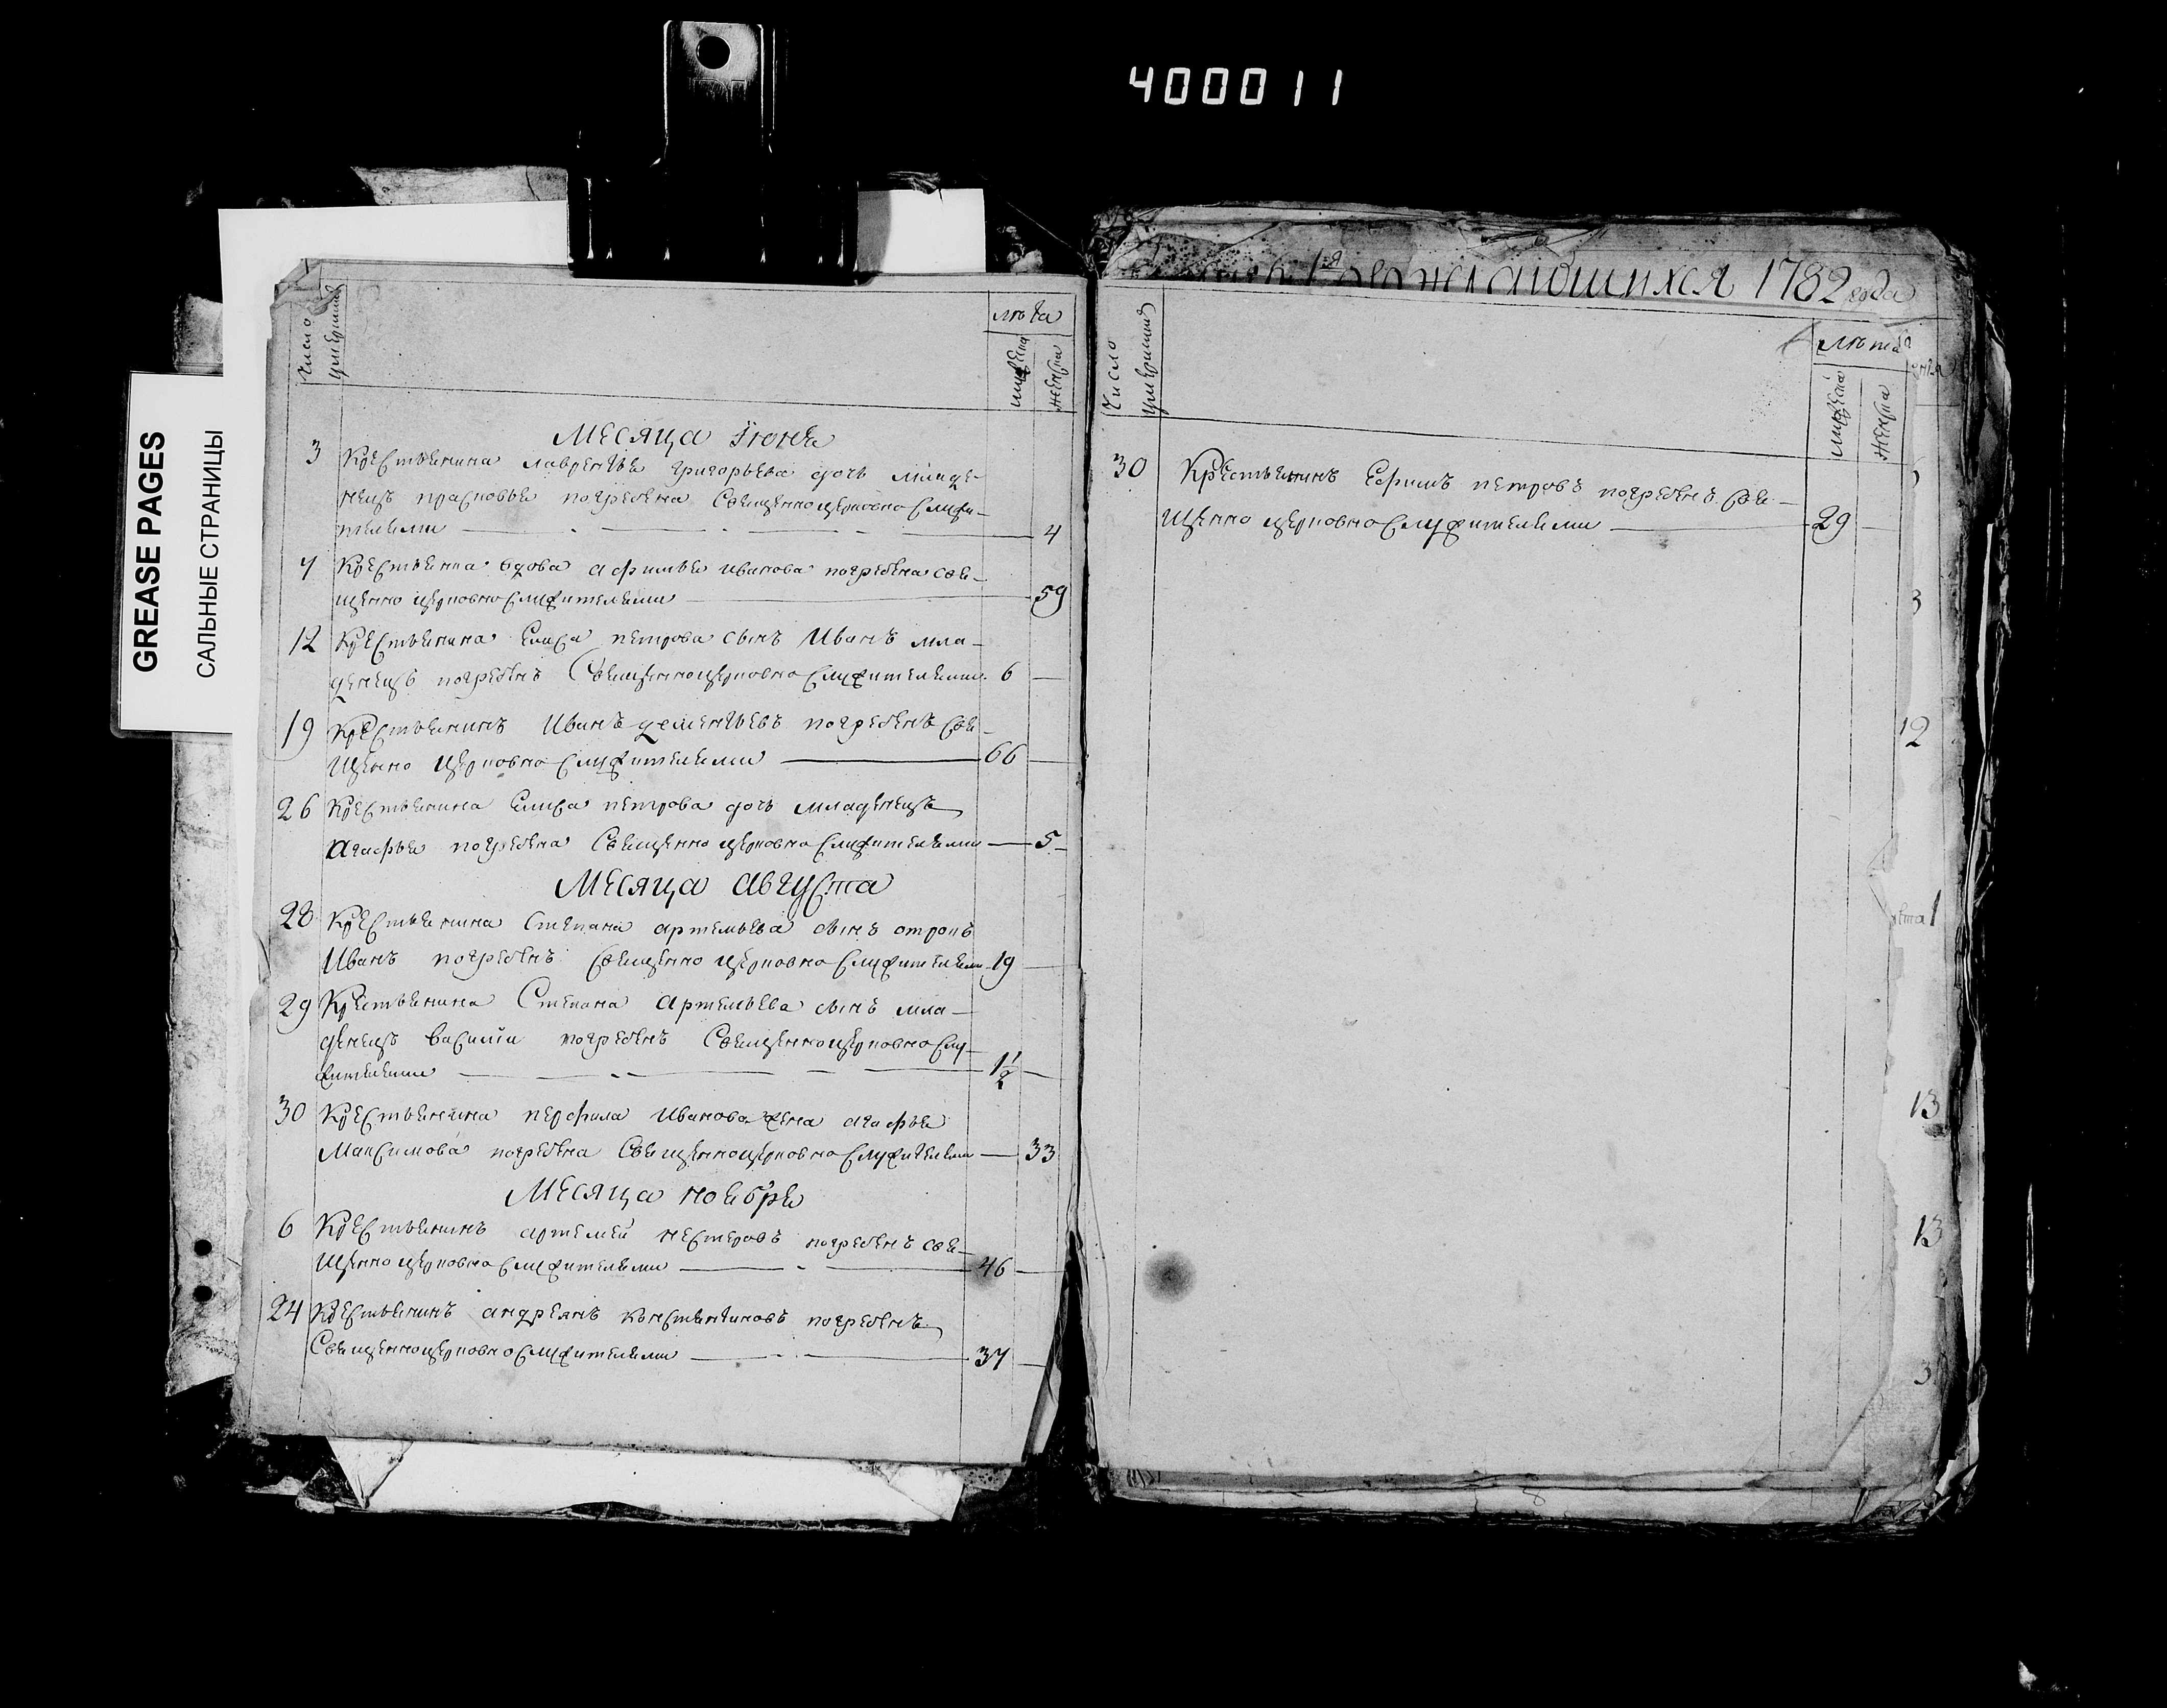 400011
GREASE PAGES
САЛЬНЫЕ СТРАНИЦЫ
Число
умершихъ
лѣта
мужеска
женска
Месяца Iюня
3 Крестьянина лаврентья григорьева дочь младе-
нецъ прасковья погребена Священноцерковно служи-
телями 4
7 Крестьянка вдова афимья иванова погребена свя-
щенно церковно служителями 59
12 Крестьянина Елисея петрова сынъ Иванъ мла-
денецъ погребенъ Священноцерковно служителями 6
19 Крестьянинъ Иванъ дементьевъ погребенъ свя-
щенно церковно служителями 66
26 Крестьянина Елисея петрова дочь младенецъ
Агафья погребена Священно церковно служителями 5
Месяца августа
28 Крестьянина Степана артемьева сынъ отрокъ
Иванъ погребенъ священно церковно служителями 19
29 Крестьянина Степана Артемьева сынъ мла-
денецъ василий погребенъ Священноцерковно слу-
жителями 1 1/2
30 Крестьянина перфила Иванова жена агафья
Максимова погребена Священноцерковно служителями 33
Месяца ноября
6 Крестьянинъ артемей нестеровъ погребенъ свя-
щенно церковно служителями 46
24 Крестьянинъ андреянъ константиновъ погребенъ
Священноцерковно служителями 37
1я 1782 года
Число
умершихъ
лѣта
мужеска
женска
30 Крестьянинъ Ефимъ петровъ погребенъ свя-
щенно церковно служителями 29
3
12
1
13
13
3